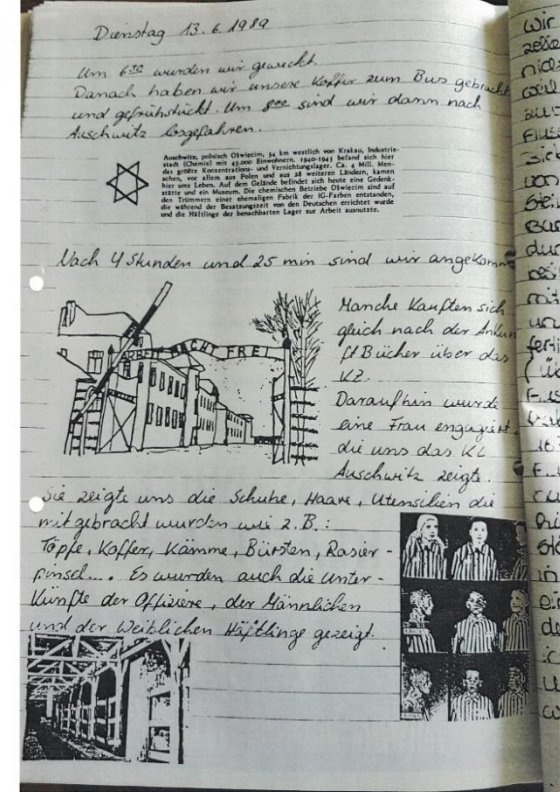 Dienstag 13.6.1989
Um 6³⁰ wurden wir geweckt.
Danach haben wir unsere Koffer zum Bus gebracht
und gefrühstückt. Um 8⁰⁰ sind wir dann nach
Auschwitz losgefahren.
Auschwitz, polnisch Oświęcim, 54 km westlich von Krakau, Industrie-
stadt (Chemie) mit 45.000 Einwohnern. 1940-1945 befand sich hier
das größte Konzentrations- und Vernichtungslager. Ca. 4 Mill. Men-
schen, vor allem aus Polen und aus 28 weiteren Ländern, kamen
hier ums Leben. Auf dem Gelände befindet sich heute eine Gedenk-
stätte und ein Museum. Die chemischen Betriebe Oświęcim sind auf
den Trümmern einer ehemaligen Fabrik der IG-Farben entstanden,
die während der Besatzungszeit von den Deutschen errichtet wurde
und die Häftlinge der benachbarten Lager zur Arbeit ausnutzte.
Nach 4 Stunden und 25 min sind wir angekomm
ARBEIT MACHT FREI
Manche kauften sich
gleich nach der Ankun
ft Bücher über das
KZ.
Daraufhin wurde
eine Frau engagiert,
die uns das KZ
Auschwitz zeigte.
Sie zeigte uns die Schuhe, Haare, Utensilien die
mitgebracht wurden wie z.B.:
Töpfe, Koffer, Kämme, Bürsten, Rasier-
pinsel... Es wurden auch die Unter-
künfte der Offiziere, der Männlichen
und der Weiblichen Häftlinge gezeigt.